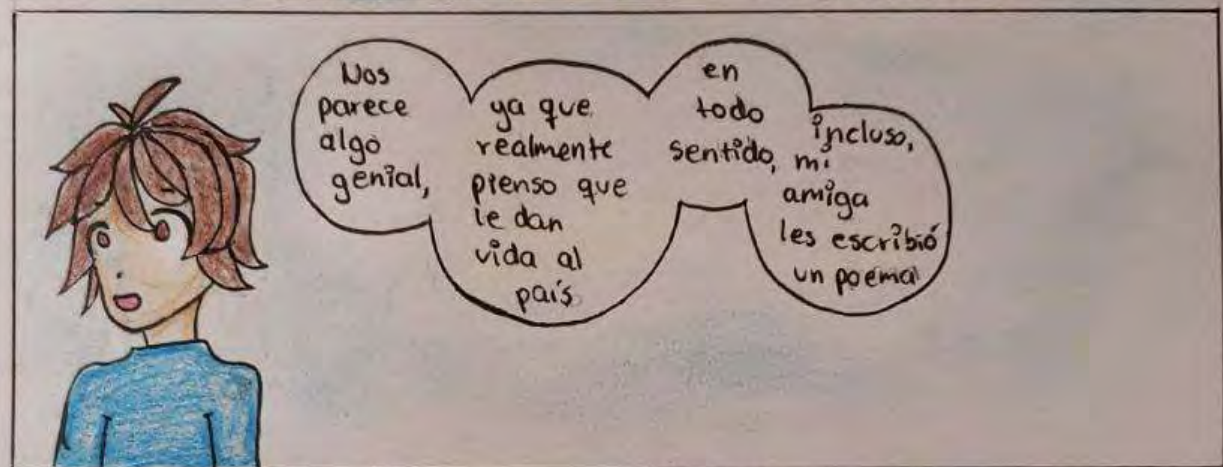 Nos
parece
algo
genial,
ya que
realmente
pienso que
le dan
vida al
país
en
todo
sentido,
incluso,
mi
amiga
les escribió
un poema